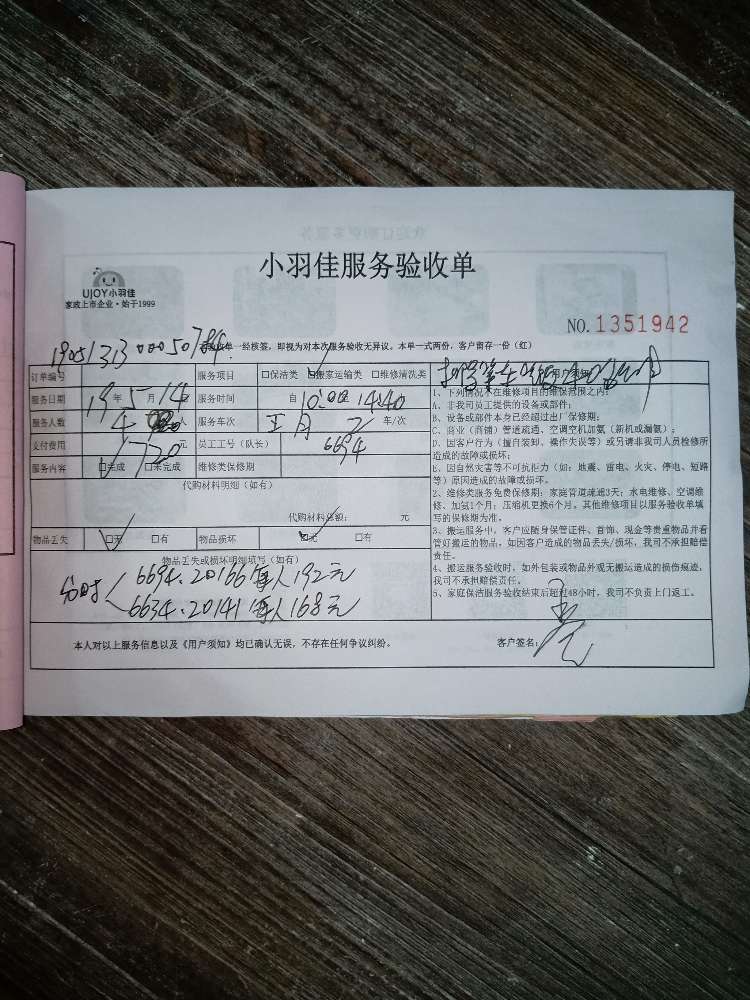 小羽佳服务验收单
UJOY小羽佳
家政上市企业·始于1999
NO.1351942
单一经核签，即视为对本次服务验收无异议。本单一式两份，客户留存一份（红）
订单编号
服务项目 □保洁类 ☑搬家运输类 □维修清洗类
服务日期 19年5月14
服务时间 自10:00 14:40
服务人数 4 人
服务车次 车/次
支付费用 720元
员工工号（队长） 6694
服务内容 ☑完成 □未完成
维修类保修期
代购材料明细（如有）
代购材料总额： 元
物品丢失 ☑无 □有
物品损坏 ☑无 □有
物品丢失或损坏明细填写（如有）
6694.20166每人192元
6634.20141每人168元
1、下列情况不在维修项目的维保范围之内：
A、非我司员工提供的设备或部件；
B、设备或部件本身已经超过出厂保修期；
C、商业（商铺）管道疏通、空调空机加氨（新机或漏氨）；
D、因客户行为（擅自装卸、操作失误等）或另请非我司人员检修所
造成的故障或损坏；
E、因自然灾害等不可抗拒力（如：地震、雷电、火灾、停电、短路
等）原因造成的故障或损坏。
2、维修类服务免费保修期：家庭管道疏通3天；水电维修、空调维
修、加氨1个月；压缩机更换6个月。其他维修项目以服务验收单填
写的保修期为准。
3、搬运服务中，客户应随身保管证件、首饰、现金等贵重物品并看
管好搬运的物品，如因客户造成的物品丢失/损坏，我司不承担赔偿
责任。
4、搬运服务验收时，如外包装或物品外观无搬运造成的损伤痕迹，
我司不承担赔偿责任。
5、家庭保洁服务验收结束后超过48小时，我司不负责上门返工。
本人对以上服务信息以及《用户须知》均已确认无误，不存在任何争议纠纷。
客户签名：